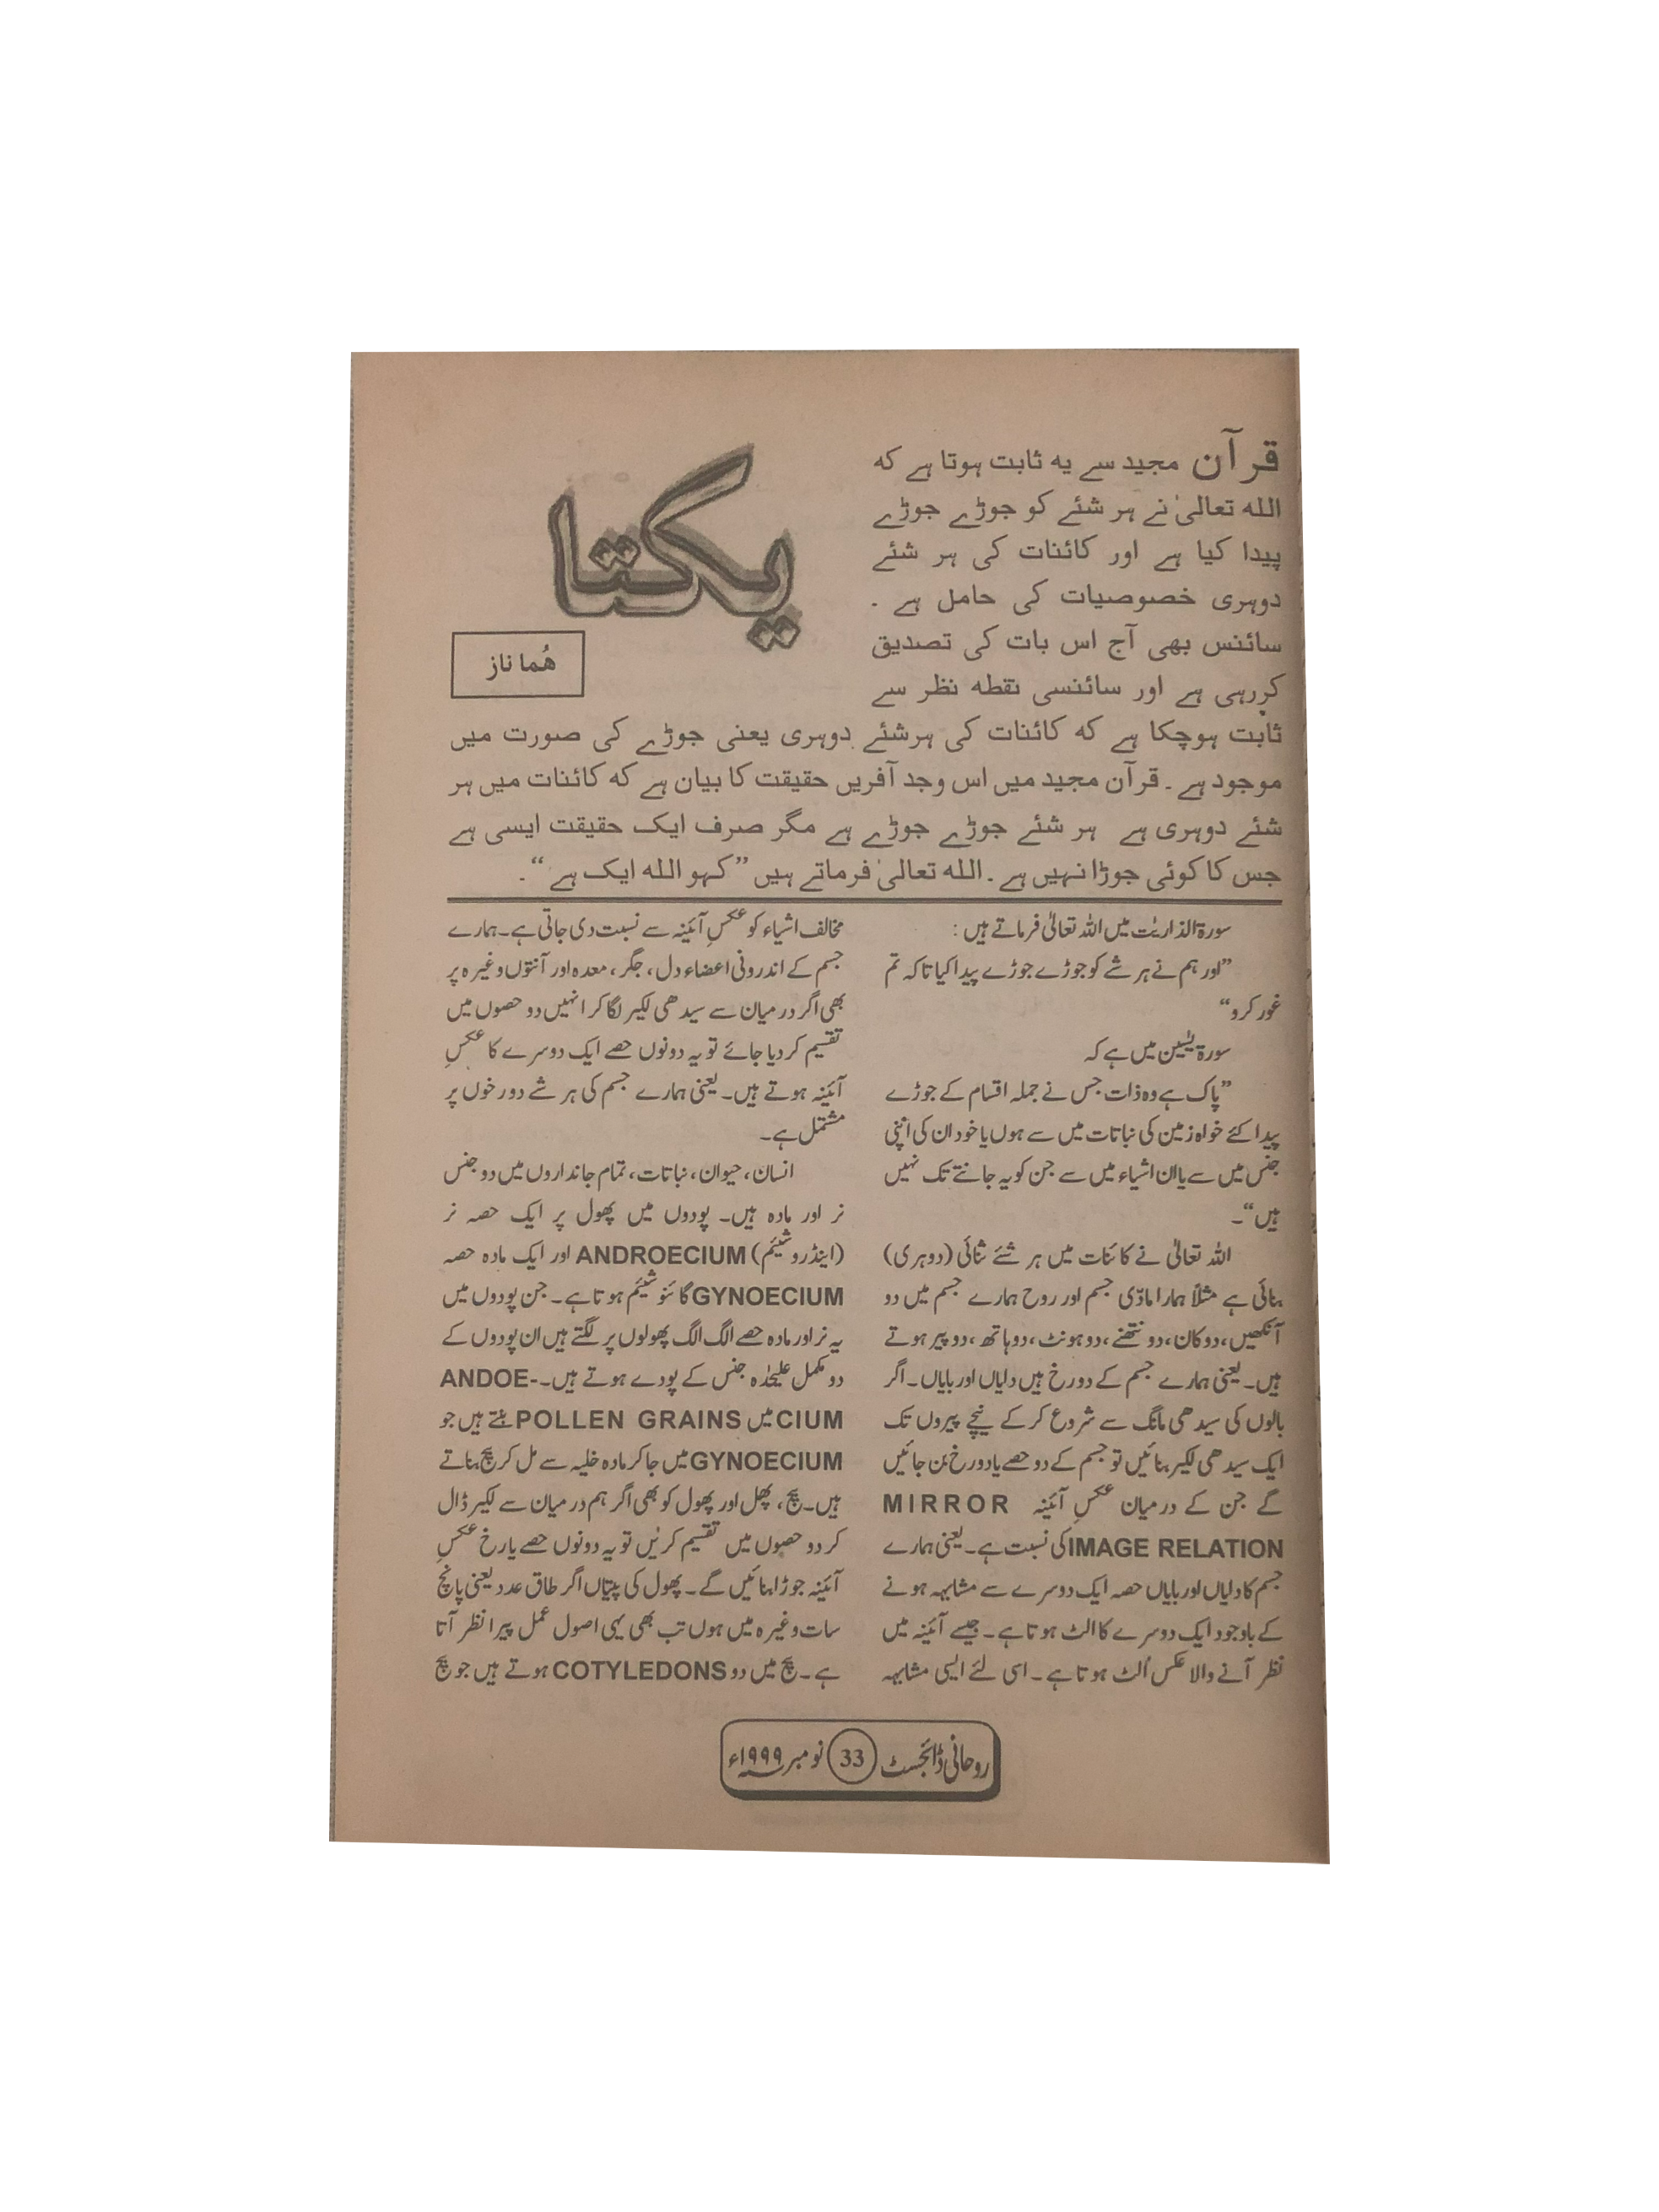 یکتا
ھُما ناز
قرآن مجید سے یہ ثابت ہوتا ہے کہ
اللہ تعالیٰ نے ہر شئے کو جوڑے جوڑے
پیدا کیا ہے اور کائنات کی ہر شئے
دوہری خصوصیات کی حامل ہے ۔
سائنس بھی آج اس بات کی تصدیق
کررہی ہے اور سائنسی نقطہ نظر سے
ثابت ہوچکا ہے کہ کائنات کی ہرشئے دوہری یعنی جوڑے کی صورت میں
موجود ہے ۔ قرآن مجید میں اس وجد آفریں حقیقت کا بیان ہے کہ کائنات میں ہر
شئے دوہری ہے ہر شئے جوڑے جوڑے ہے مگر صرف ایک حقیقت ایسی ہے
جس کا کوئی جوڑا نہیں ہے ۔ اللہ تعالیٰ فرماتے ہیں ”کہو اللہ ایک ہے“ ۔
سورۃ الذاریٰت میں اللہ تعالیٰ فرماتے ہیں :
”اور ہم نے ہر شے کو جوڑے جوڑے پیدا کیا تاکہ تم
غور کرو“
سورۃ یٰسین میں ہے کہ
”پاک ہے وہ ذات جس نے جملہ اقسام کے جوڑے
پیدا کئے خواہ زمین کی نباتات میں سے ہوں یا خود ان کی اپنی
جنس میں سے یا ان اشیاء میں سے جن کو یہ جانتے تک نہیں
ہیں“۔
اللہ تعالیٰ نے کائنات میں ہر شئے ثنائی (دوہری)
بنائی ہے مثلاً ہمارا مادّی جسم اور روح ہمارے جسم میں دو
آنکھیں، دو کان، دو نتھنے، دو ہونٹ، دو ہاتھ، دو پیر ہوتے
ہیں۔ یعنی ہمارے جسم کے دو رخ ہیں دایاں اور بایاں۔ اگر
بالوں کی سیدھی مانگ سے شروع کر کے نیچے پیروں تک
ایک سیدھی لکیر بنائیں تو جسم کے دو حصے یا دو رخ بن جائیں
گے جن کے درمیان عکسِ آئینہ MIRROR
IMAGE RELATION کی نسبت ہے۔ یعنی ہمارے
جسم کا دایاں اور بایاں حصہ ایک دوسرے سے مشابہہ ہونے
کے باوجود ایک دوسرے کا الٹ ہوتا ہے۔ جیسے آئینہ میں
نظر آنے والا عکس اُلٹ ہوتا ہے۔ اسی لئے ایسی مشابہہ
مخالف اشیاء کو عکسِ آئینہ سے نسبت دی جاتی ہے۔ ہمارے
جسم کے اندرونی اعضاء دل، جگر، معدہ اور آنتوں وغیرہ پر
بھی اگر درمیان سے سیدھی لکیر لگا کر انہیں دو حصوں میں
تقسیم کر دیا جائے تو یہ دونوں حصے ایک دوسرے کا عکسِ
آئینہ ہوتے ہیں۔ یعنی ہمارے جسم کی ہر شے دو رخوں پر
مشتمل ہے۔
انسان، حیوان، نباتات، تمام جانداروں میں دو جنس
نر اور مادہ ہیں۔ پودوں میں پھول پر ایک حصہ نر
(اینڈروشیئم) ANDROECIUM اور ایک مادہ حصہ
GYNOECIUM گائنوشیئم ہوتا ہے۔ جن پودوں میں
یہ نر اور مادہ حصے الگ الگ پھولوں پر لگتے ہیں ان پودوں کے
دو مکمل علیحدٰہ جنس کے پودے ہوتے ہیں۔ ANDOE-
CIUM میں POLLEN GRAINS بنتے ہیں جو
GYNOECIUM میں جا کر مادہ خلیہ سے مل کر بیج بناتے
ہیں۔ بیج، پھل اور پھول کو بھی اگر ہم درمیان سے لکیر ڈال
کر دو حصوں میں تقسیم کریں تو یہ دونوں حصے یا رخ عکسِ
آئینہ جوڑا بنائیں گے۔ پھول کی پتیاں اگر طاق عدد یعنی پانچ
سات وغیرہ میں ہوں تب بھی یہی اصول عمل پیرا نظر آتا
ہے۔ بیج میں دو COTYLEDONS ہوتے ہیں جو بیج
روحانی ڈائجسٹ 33 نومبر ۱۹۹۹ء